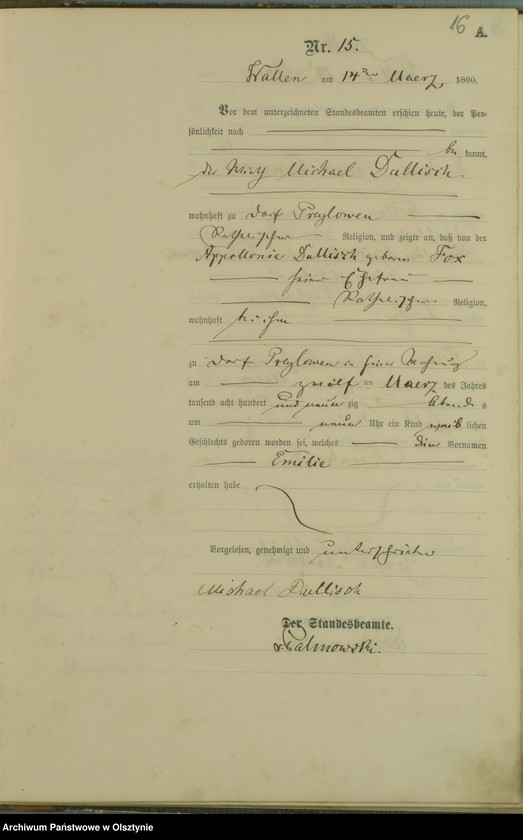 16 A.
Nr. 15.
Wallen am 14ten Maerz 1890.
Vor dem unterzeichneten Standesbeamten erschien heute, der Per-
sönlichkeit nach
be kannt,
der Wirth Michael Dullisch
wohnhaft zu Dorf Preylowen
katholischer Religion, und zeigte an, daß von der
Appollonia Dullisch geborene Fox
seiner Ehefrau
katholischer Religion,
wohnhaft bei ihm
zu Dorf Preylowen in seiner Wohnung
am zwölf ten Maerz des Jahres
tausend acht hundert und neun zig Abends
um neun Uhr ein Kind weib lichen
Geschlechts geboren worden sei, welches den Vornamen
Emilie
erhalten habe
Vorgelesen, genehmigt und unterschrieben
Michael Dullisch
Der Standesbeamte.
v. Palmowski.
Archiwum Państwowe w Olsztynie